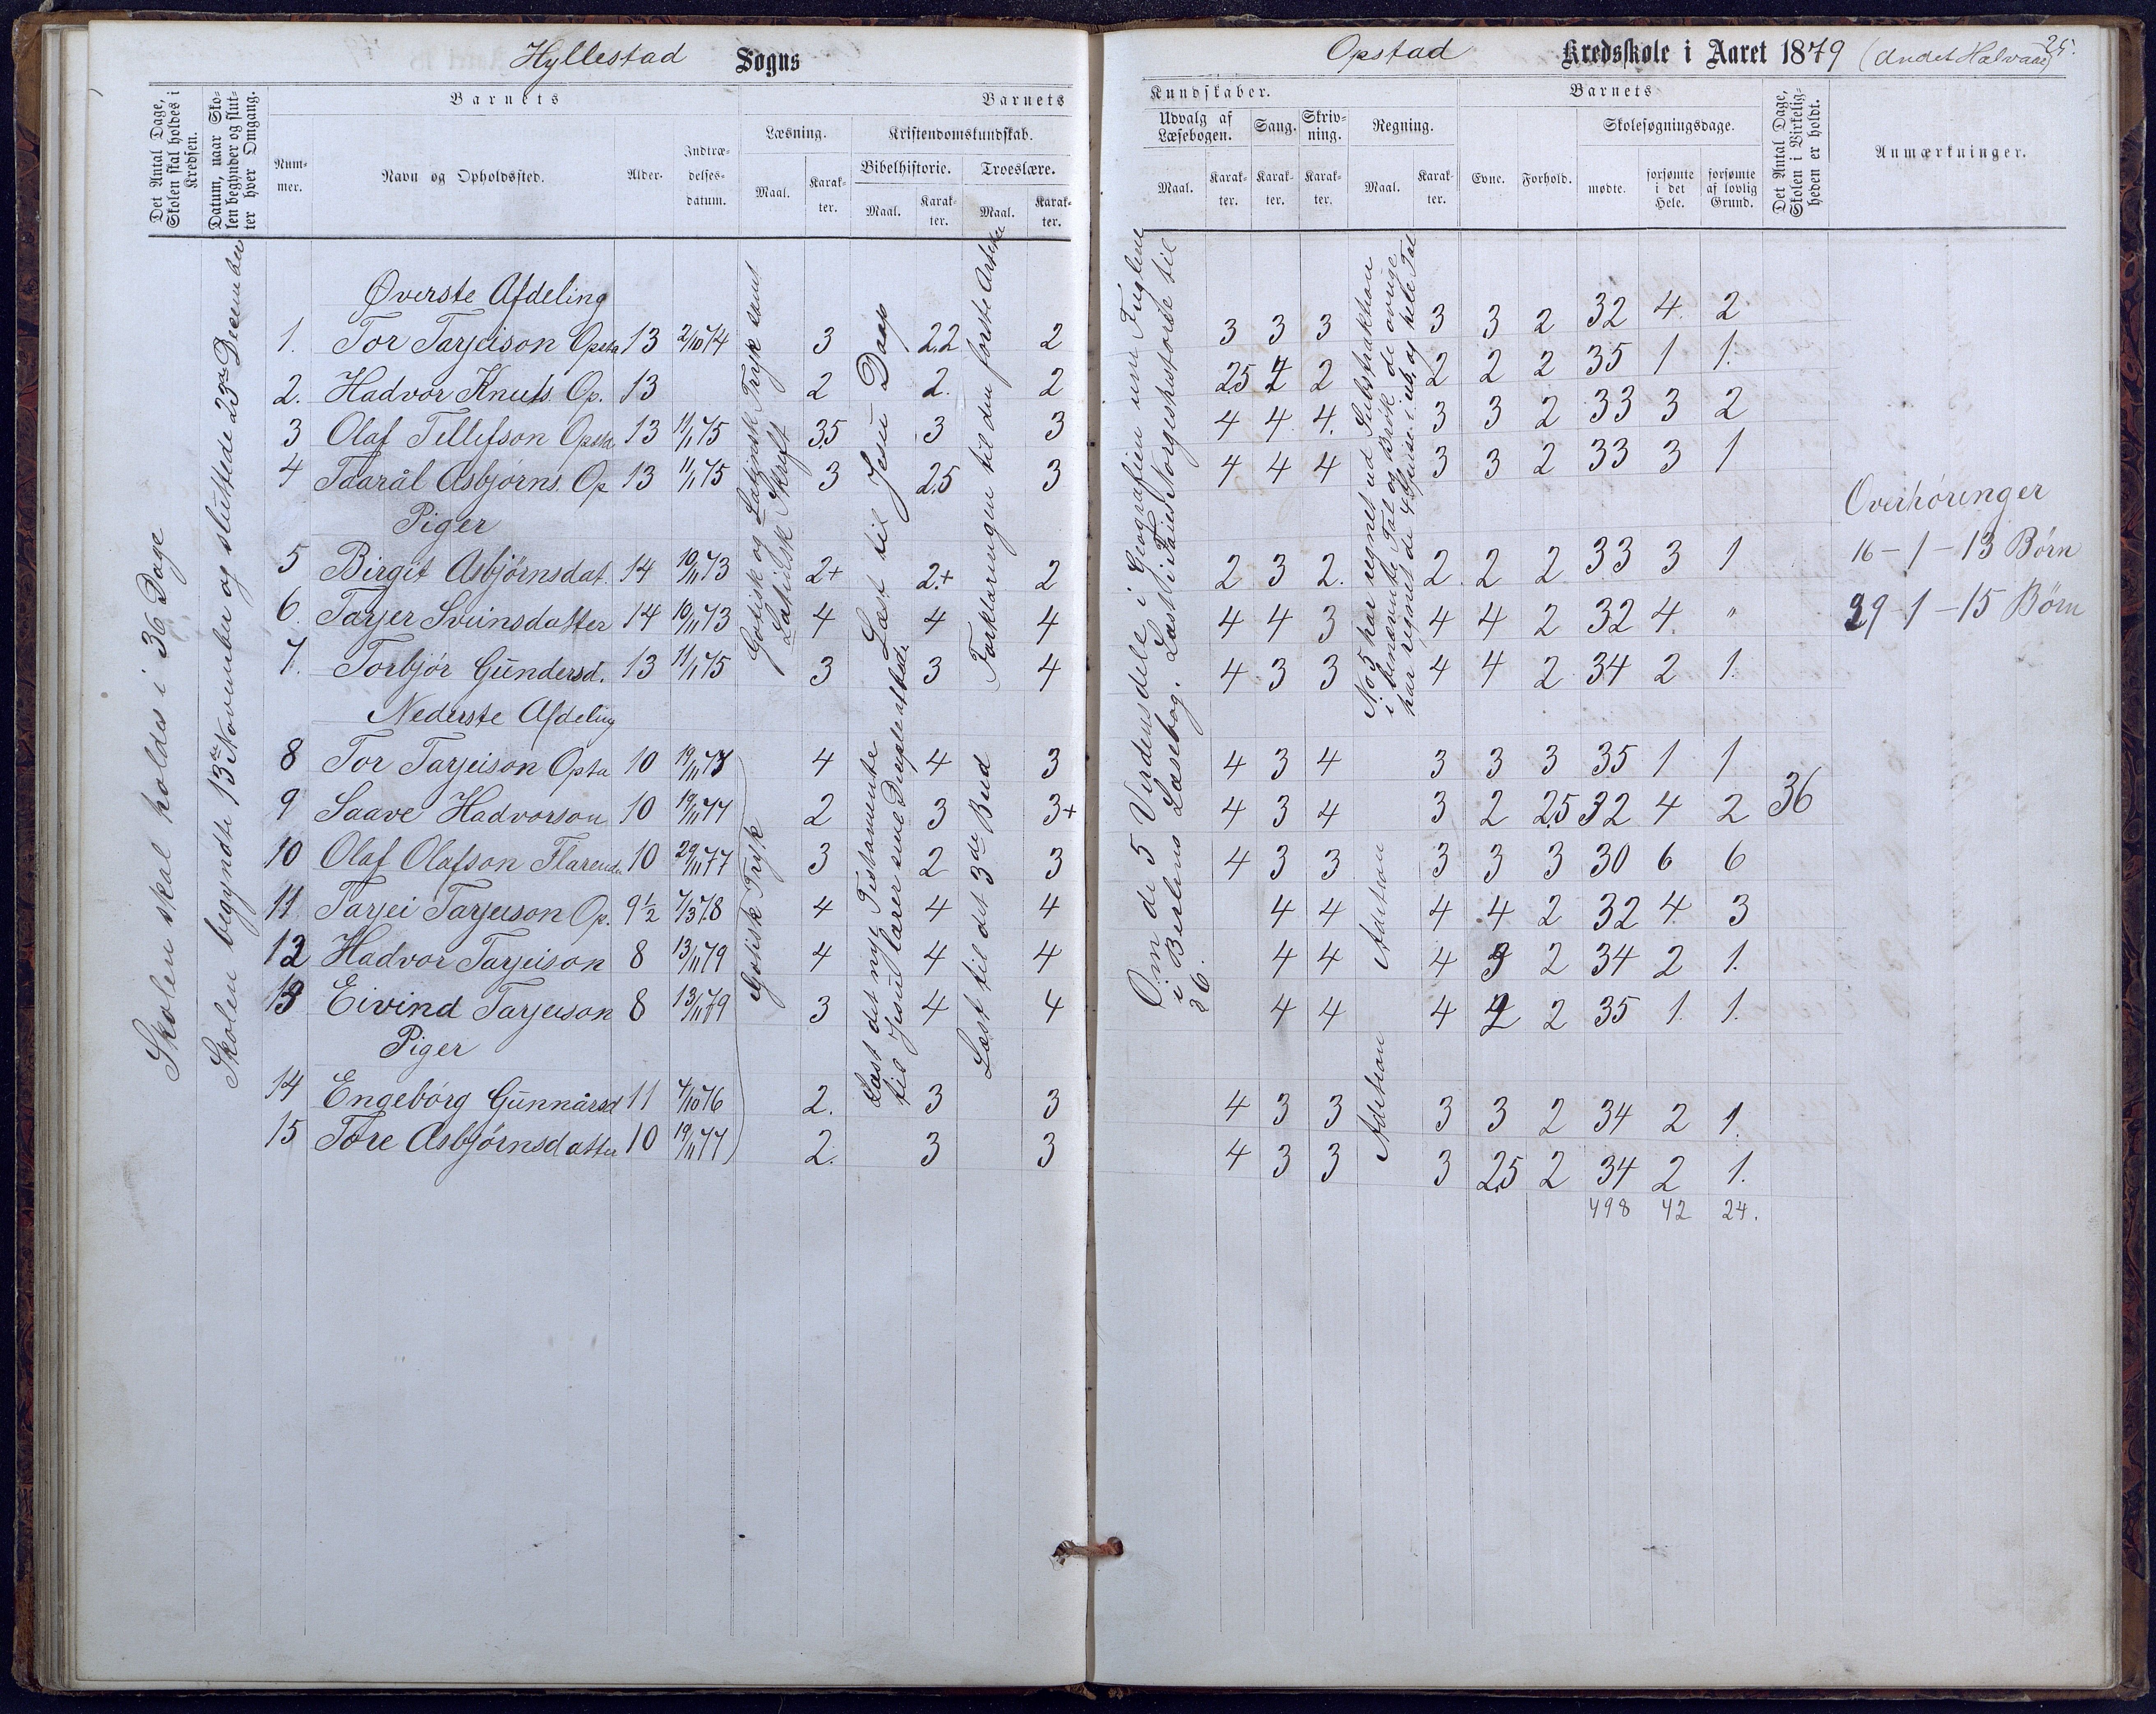 Hyllestad Sogns
Det Antal Dage, Skolen skal holdes i Kredsen.
Datum, naar Skolen begynder og slutter hver Omgang.
Nummer.
Barnets
Navn og Opholdssted.
Alder.
Indtrædelsesdatum.
Barnets
Læsning.
Maal.
Karakter.
Kristendomskundskab.
Bibelhistorie.
Maal.
Karakter.
Troeslære.
Maal.
Karakter.
Skolen skal holdes i 36 Dage
Skolen begyndte 13de November og sluttede 23de December
Gotisk og Latinsk Tryk samt Latinsk Skrift
Læst til Jesu Daap
Forklaringen til den første Artikel
Øverste Afdeling
1. Tor Tarjeison Opsta 13 2/10 74 3 2.2 2
2. Hadvor Knuts. Op. 13 2 2. 2
3 Olaf Tellefson Opsta 13 11/1 75 3.5 3 3
4 Taarål Asbjørns. Op 13 11/1 75 3 2.5 3
Piger
5 Birgit Asbjørnsdat. 14 10/11 73 2+ 2.+ 2
6. Tarjer Sveinsdatter 14 10/11 73 4 4 4
7. Torbjór Gundersd. 13 11/1 75 3 3 4
Nederste Afdeling
Gotisk Tryk
Læst det nye Testamente til Jesu lærer sine Disiple at bede
Læst til det 3die Bud
8 Tor Tarjeison Opsta 10 19/11 77 4 4 3
9 Saave Hadvorson 10 19/11 77 2 3 3+
10 Olaf Olafson Flarend. 10 29/11 77 3 2 3
11. Tarjei Tarjeison Op. 9½ 7/3 78 4 4 4
12 Hadvor Tarjeison 8 13/11 79 4 4 4
13 Eivind Tarjeison 8 13/11 79 3 4 4
Piger
14 Engebórg Gunnårsd 11 4/10 76 2. 3 3
15 Tore Asbjørnsdatter 10 19/11 77 2. 3 3
Opstad Kredsskole i Aaret 1879 (Andet Halvaar)
25.
Kundskaber.
Udvalg af Læsebogen.
Maal.
Karakter.
Sang.
Karakter.
Skrivning.
Karakter.
Regning.
Maal.
Karakter.
Barnets
Evne.
Forhold.
Skolesøgningsdage.
mødte.
forsømte i det Hele.
forsømte af lovlig Grund.
Det Antal Dage, Skolen i Virkeligheden er holdt.
Anmærkninger.
Om de 5 Verdensdele i Geografien om Fuglene
i Læsebog. Læst i Norgeshistorie til
36.
No 5 har regnet ud Substraktion
i benævnte Tal og Brøk de øvrige
har regnet de 4 i ub. og hele Tal
3 3 3 3 3 2 32 4. 2
2.5 2 2 2 2 2 35 1 1.
4 4 4. 3 3 2 33 3 2
4 4 4 3 3 2 33 3 1
2 3 2. 2 2 2 33 3 1
4 4 3 4 4 2 32 4. "
4 3 3 4 4 2 34 2 1.
4 3 4 3 3 3 35 1 1
4 3 4 3 2 2.5 32 4 2 36
4 3 3 3 3 3 30 6 6
4 4 Adetion 4 4 2 32 4. 3
4 4 4 3 2 34 2 1.
4 4 4 2 2 35 1. 1.
4 3 3 Adetion 3 3 2 34 2 1.
4 3 3 3 2.5 2 34 2 1.
498 42 24.
Overhøringer
16 - 1 - 13 Børn
29 - 1 - 15 Børn